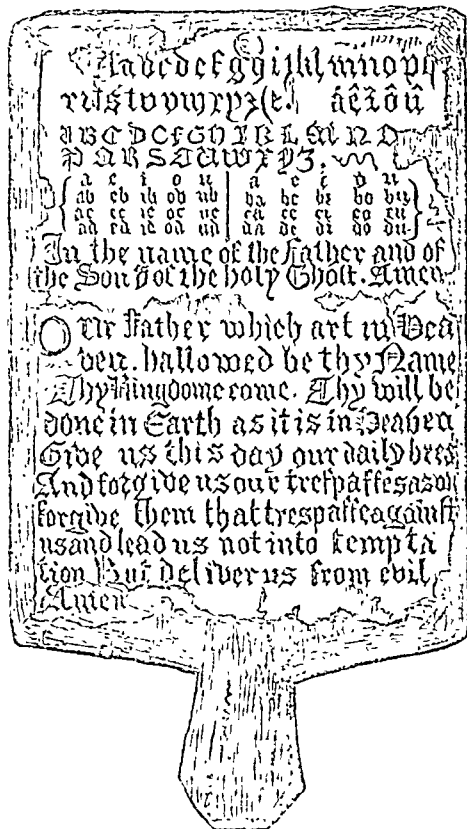 Aabcdefgģijklmnopq
rſstuvwxyz&. áêîôû
ABCDEFGHIKLMNO
PQRSTUWXYZ.
a e i o u | a e i o u
ab eb ib ob ub | ba be bi bo bu
ac ec ic oc uc | ca ce ci co cu
ad ed id od ud | da de di do du
In the name of the Father and of
the Son & of the holy Ghost. Amen
Our Father which art in Hea
ven. hallowed be thy Name
Thy Kingdome come. Thy will be
done in Earth as it is in Heaven
Give us this day our daily bred
And forgive us our treſpaſſes as we
forgive them that trespaſſe againſt
us and lead us not into tempta
tion But deliver us from evil,
Amen